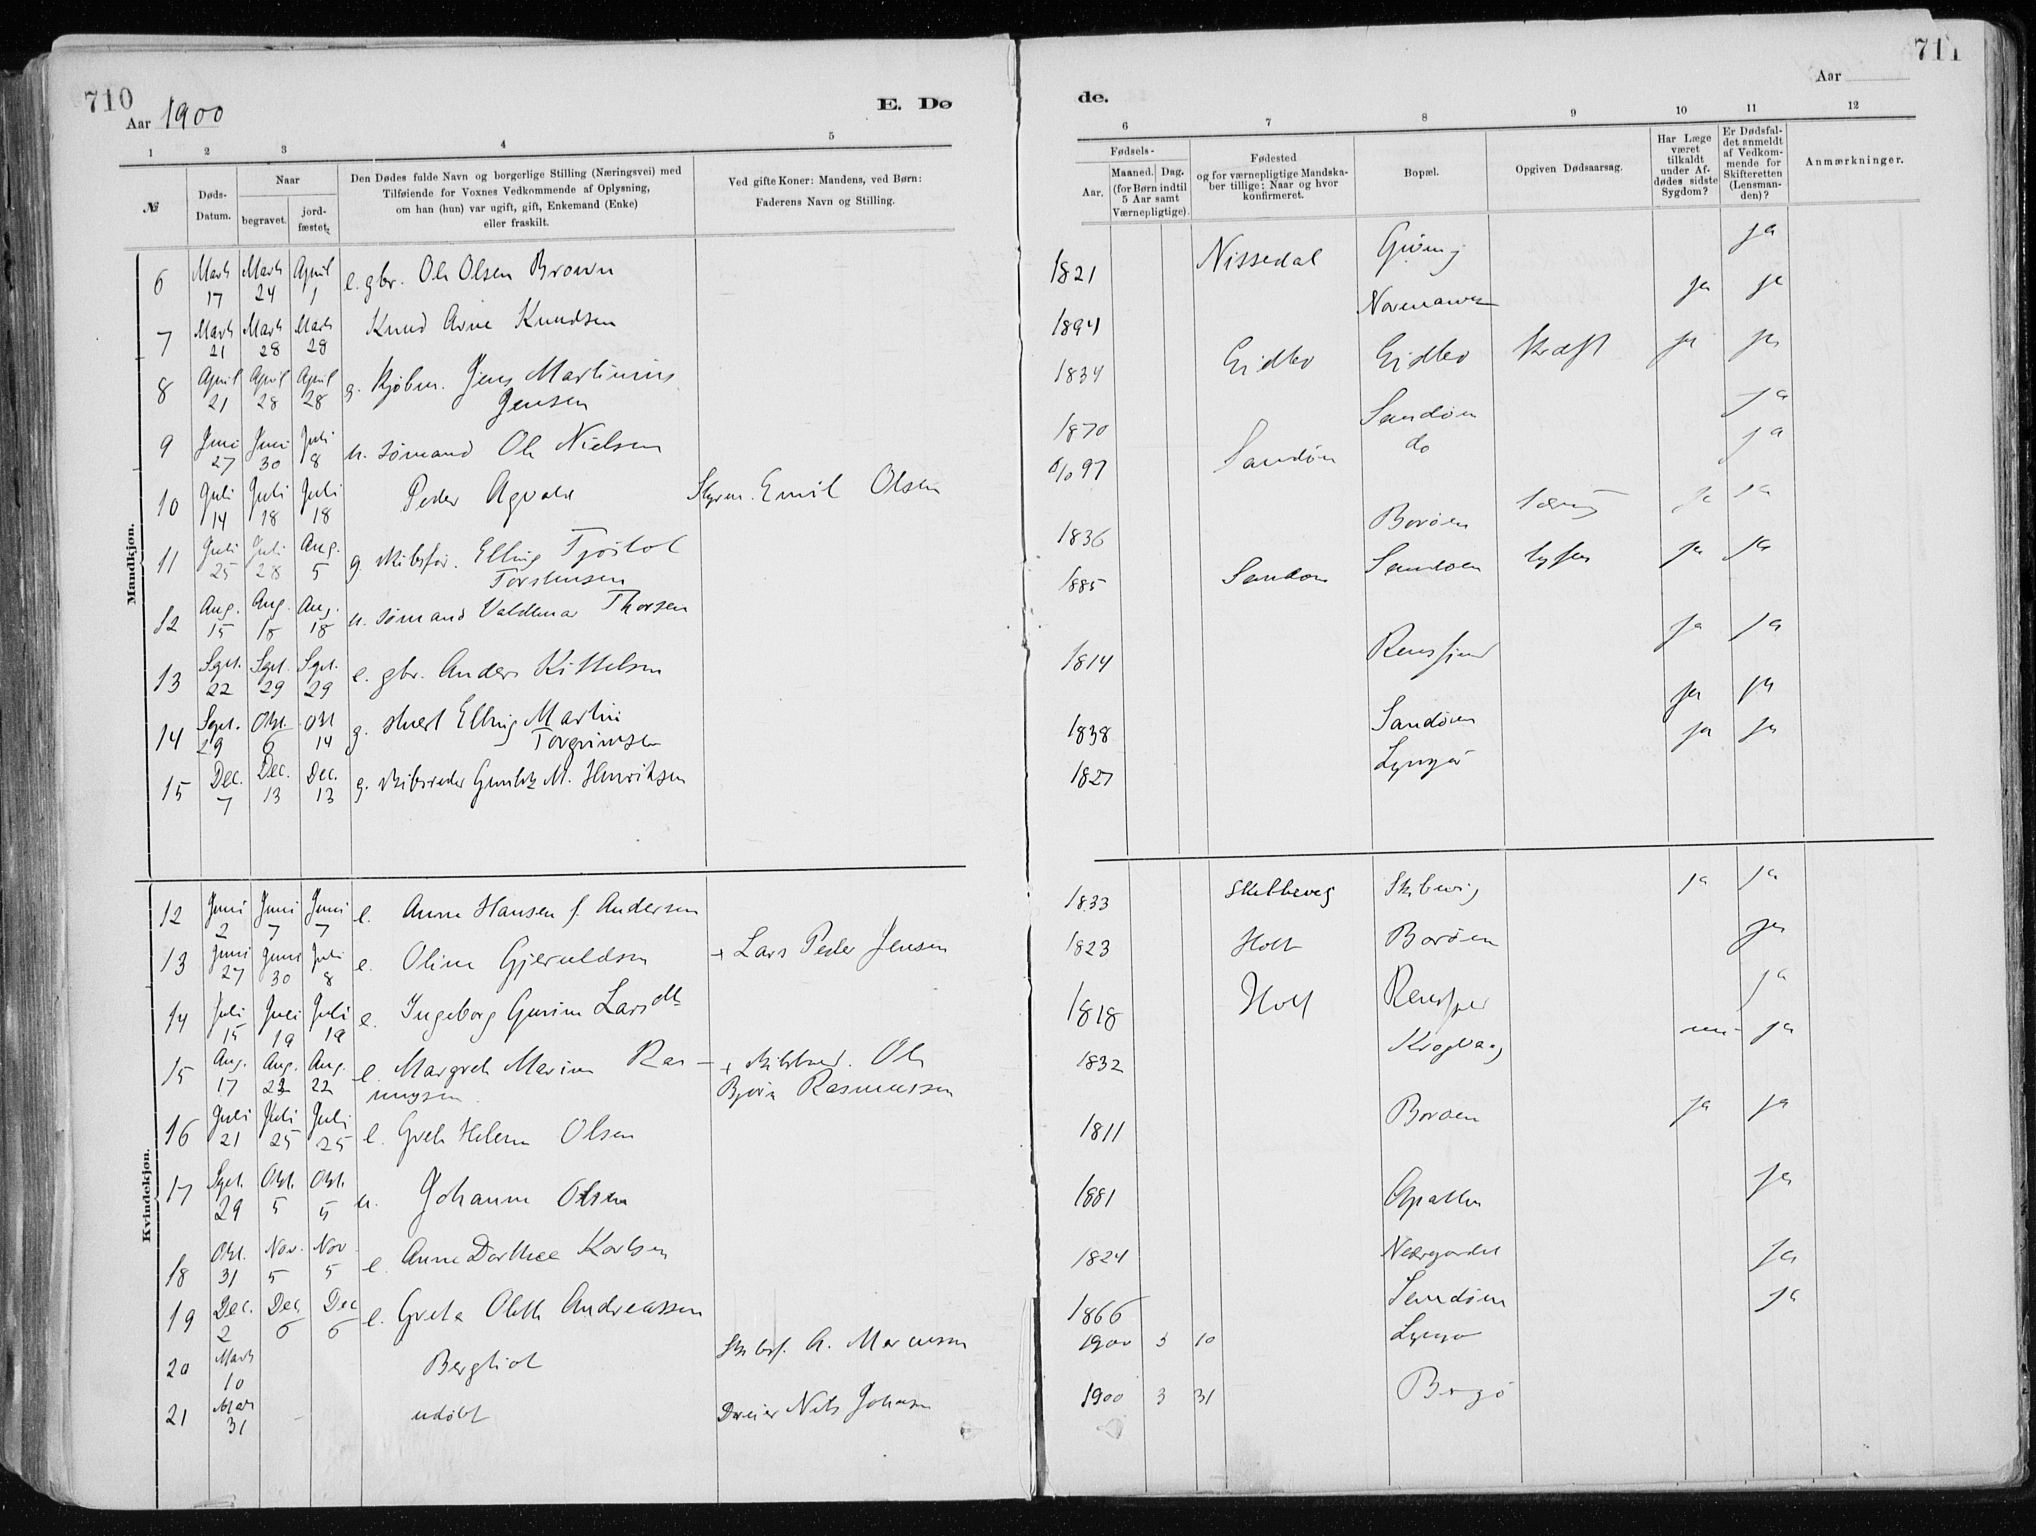 710
711
Aar 1900
E. Dø
de.
Aar
1 2 3 4 5 6 7 8 9 10 11 12
№
Døds-
Datum.
Naar
begravet.
jord-
fæstet.
Den Dødes fulde Navn og borgerlige Stilling (Næringsvei) med
Tilføiende for Voxnes Vedkommende af Oplysning,
om han (hun) var ugift, gift, Enkemand (Enke)
eller fraskilt.
Ved gifte Koner: Mandens, ved Børn:
Faderens Navn og Stilling.
Fødsels-
Aar.
Maaned. Dag.
(for Børn indtil
5 Aar samt
Værnepligtige).
Fødested
og for værnepligtige Mandska-
ber tillige: Naar og hvor
konfirmeret.
Bopæl.
Opgiven Dødsaarsag.
Har Læge
været
tilkaldt
under Af-
dødes sidste
Sygdom?
Er Dødsfal-
det anmeldt
af Vedkom-
mende for
Skifteretten
(Lensman-
den)?
Anmærkninger.
Mandkjøn.
6 Marts 17 Marts 24 April 1 e. gbr. Ole Olsen Brown 1821 Nissedal ja
7 Marts 21 Marts 28 Marts 29 Knud Arne Knudsen 1894 ja ja
8 April 21 April 28 April 28 g. kjøbm. Jens Martinius
Jensen 1834 Eidbo Eidbo kræft ja ja
9 Juni 27 Juni 30 Juli 8 u. sømand Ole Nielsen 1870 Sandøen ja
10 Juli 14 Juli 18 Juli 18 Peder Agvald Styrm. Emil Olsen 97 Sandøen do ja
11 Juli 25 Juli 28 Aug. 5 g. skibsfør. Elling Tjøstol
Torstensen 1836 Borøen ja ja
12 Aug. 15 Aug. 18 Aug. 18 u. sømand Valdemar Thorsen 1885 Sandøen Sandøen tyfus ja ja
13 Sept. 22 Sept. 29 Sept. 29 e. gbr. Anders Kittelsen 1814 ja ja
14 Sept. 29 Okt. 6 Okt 14 g. Elling Martin
Torgrimsen 1838 Sandøen ja ja
15 Dec. 7 Dec. 13 Dec. 13 g. skibsreder M. Henriksen 1827 Lyngør ja ja
Kvindekjøn.
12 Juni 2 Juni 7 Juni 7 e. Anne Hansen f. Andersen 1833 Skibbevig ja ja
13 Juni 27 Juni 30 Juli 8 e. Oline Gjeruldsen + Lars Peder Jensen 1823 Holt Borøen ja
14 Juli 15 Juli 19 Juli 19 e. Ingeborg Gurine Larsdt 1818 Holt ja
15 Aug. 17 Aug. 22 Aug. 22 e. Margrethe Marine Ras-
mussen + Ole
Bjørn Rasmussen 1832 Krogvaag nei ja
16 Juli 21 Juli 25 Juli 25 e. Grethe Helene Olsen 1811 Borøen ja ja
17 Sept. 29 Okt. 5 Okt. 5 u. Johanne Olsen 1881 ja
18 Okt. 31 Nov. 5 Nov 5 e. Anne Dorthea Karlsen 1824 ja
19 Dec. 2 Dec. 6 Dec 6 e. Grete Oleth Andreassen 1866 Sandøen ja
20 Marts 10 Bergliot Skibsf. A. Marcussen 1900 3 10 Lyngør
21 Mar 31 - udøbt Dreier Nils Johnsen 1900 3 31